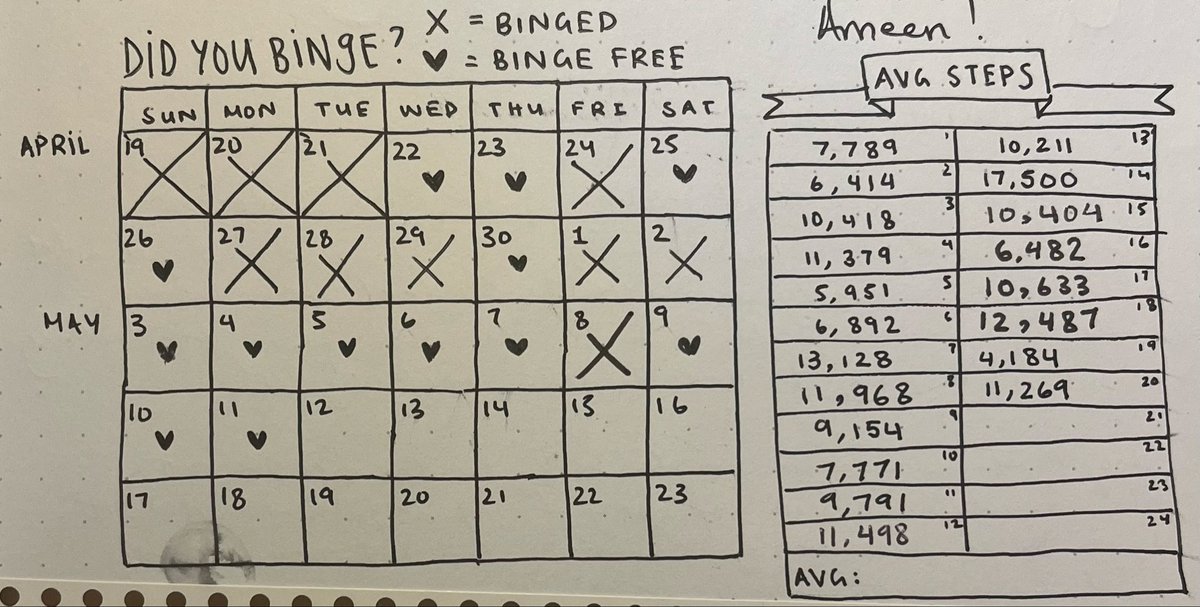 DID YOU BINGE?
X = BINGED
♥ = BINGE FREE
SUN MON TUE WED THU FRI SAT
APRIL
19 20 21 22 23 24 25
26 27 28 29 30 1 2
MAY
3 4 5 6 7 8 9
10 11 12 13 14 15 16
17 18 19 20 21 22 23
Ameen!
AVG STEPS
7,789 1 10,211 13
6,414 2 17,500 14
10,418 3 10,404 15
11,379 4 6,482 16
5,951 5 10,633 17
6,892 6 12,487 18
13,128 7 4,184 19
11,968 8 11,269 20
9,154 9 21
7,771 10 22
9,791 11 23
11,498 12 24
AVG: